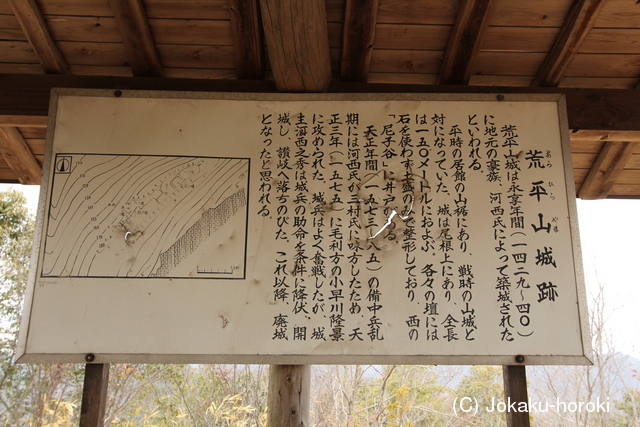 荒平山城跡
あら ひら やま
荒平山城は永享年間(一四二九〜四〇)
に地元の豪族、河西氏によって築城された
といわれる。
平時の居館の山裾にあり、戦時の山城と
対になっていた。城は尾根上にあり、全長
は一五〇メートルにおよぶ、各々の壇には
石を使わず土盛のみで整形しており、西の
「尼子谷」に井戸がある。
天正年間(一五七三〜八五)の備中兵乱
期には河西氏が三村氏に味方したため、天
正三年(一五七五)に毛利方の小早川隆景
に攻められた。城兵はよく奮戦したが、城
主河西之秀は城兵の助命を条件に降伏、開
城し、讃岐へ落ちのびた。これ以降、廃城
となったと思われる。
(C) Jokaku-horoki